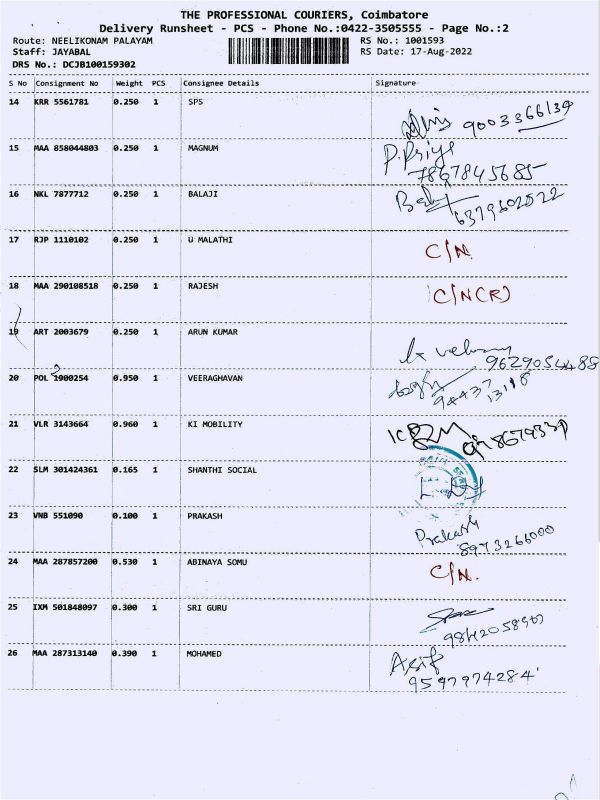 THE PROFESSIONAL COURIERS, Coimbatore
Delivery Runsheet - PCS - Phone No.:0422-3505555 - Page No.:2
Route: NEELIKONAM PALAYAM RS No.: 1001593
Staff: JAYABAL RS Date: 17-Aug-2022
DRS No.: DCJB100159302
S No Consignment No Weight PCS Consignee Details Signature
14 KRR 5561781 0.250 1 SPS
9003366139
15 MAA 858044803 0.250 1 MAGNUM P.Priya
7867845685
16 NKL 7877712 0.250 1 BALAJI
6379602522
17 RJP 1110102 0.250 1 U MALATHI C/N.
18 MAA 290108518 0.250 1 RAJESH C/N(R)
19 ART 2003679 0.250 1 ARUN KUMAR
9629054488
20 POL 1900254 0.950 1 VEERAGHAVAN
21 VLR 3143664 0.960 1 KI MOBILITY
22 SLM 301424361 0.165 1 SHANTHI SOCIAL
23 VNB 551090 0.100 1 PRAKASH Prakash
8973266000
24 MAA 287857200 0.530 1 ABINAYA SOMU C/N.
25 IXM 501848097 0.300 1 SRI GURU
26 MAA 287313140 0.390 1 MOHAMED Asif
9597974284